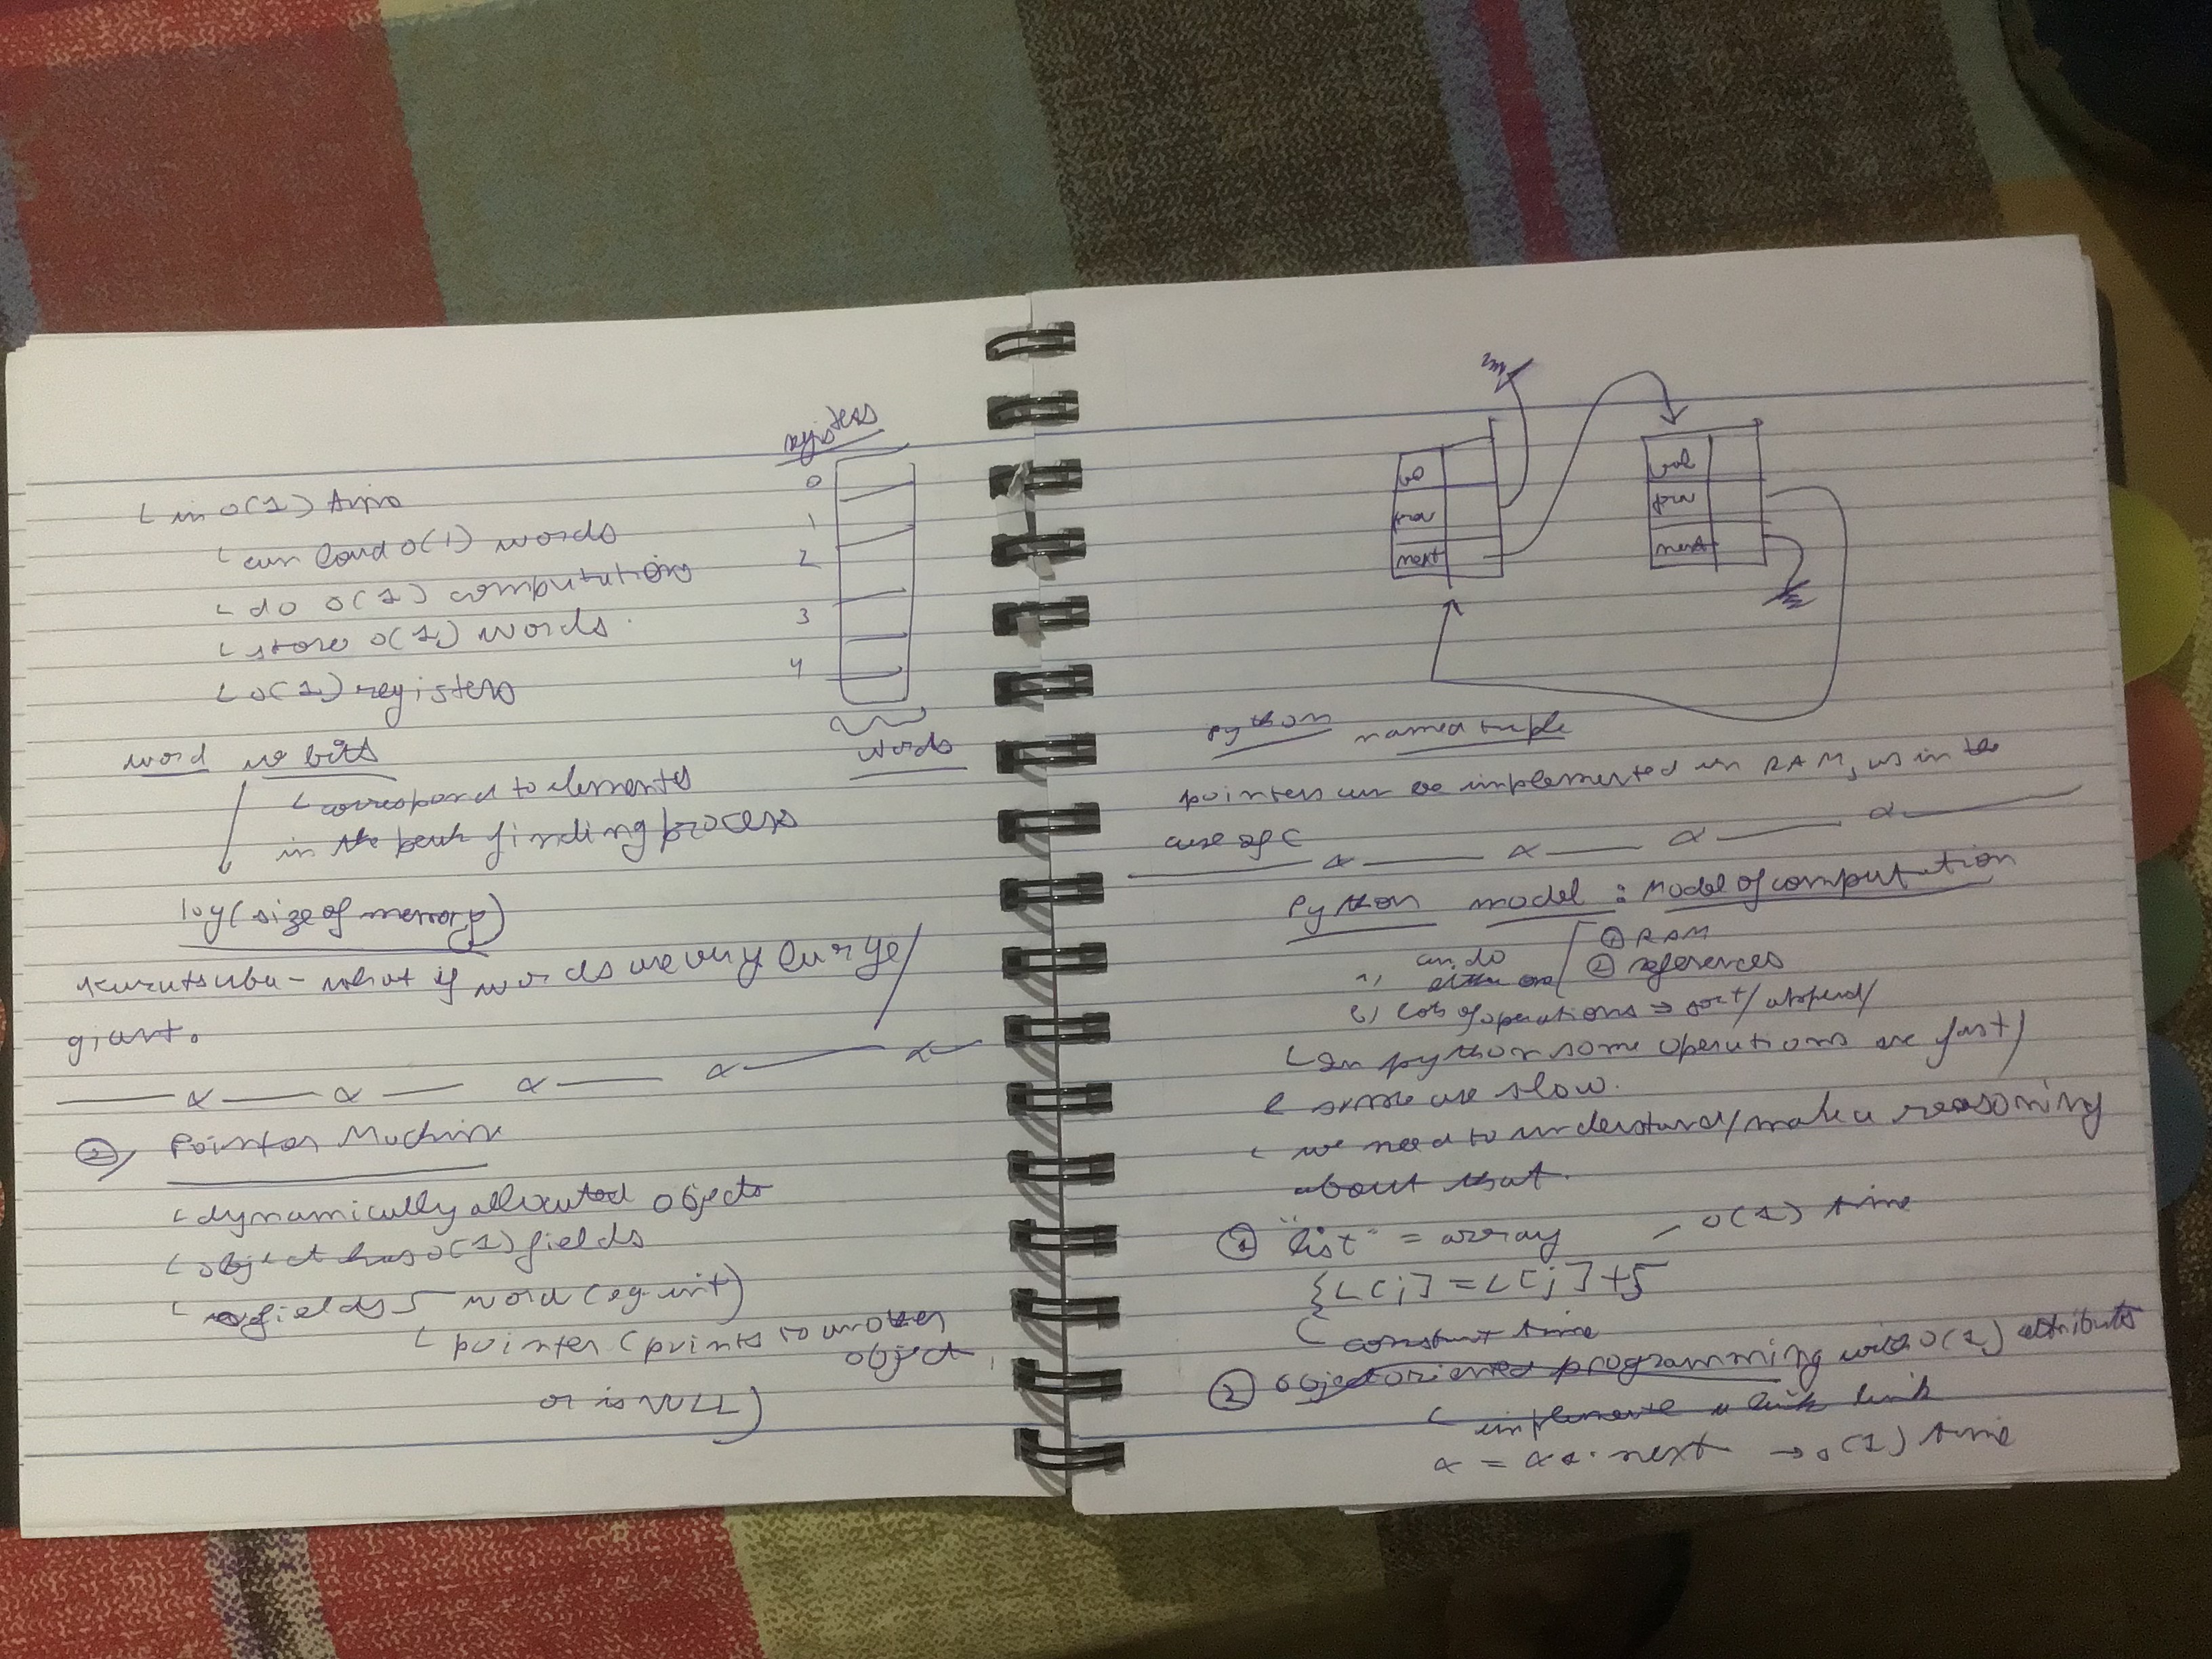 registers
in O(1) time
can load O(1) words
do O(1) computations
store O(1) words.
O(1) registers
0
1
2
3
4
words
word w bits
correspond to elements
in the peak finding process
log(size of memory)
karatsuba - what if words are very large/
giant.
② Pointer Machine
dynamically allocated objects
object has O(1) fields
fields word (eg int)
pointer (points to another
object,
or is NULL)
prev
next
val
prev
next
Python named tuple
pointers can be implemented in RAM, as in the
case of C
Python model : Model of computation
1) can do ① RAM
② references
2) lots of operations ⇒ sort/append/
In python some operations are fast/
some are slow.
we need to understand/make a reasoning
about that.
① "list" = array - O(1) time
{L[i] = L[j]+5
constant time
② object oriented programming with O(1) attributes
implement a link
next → O(1) time